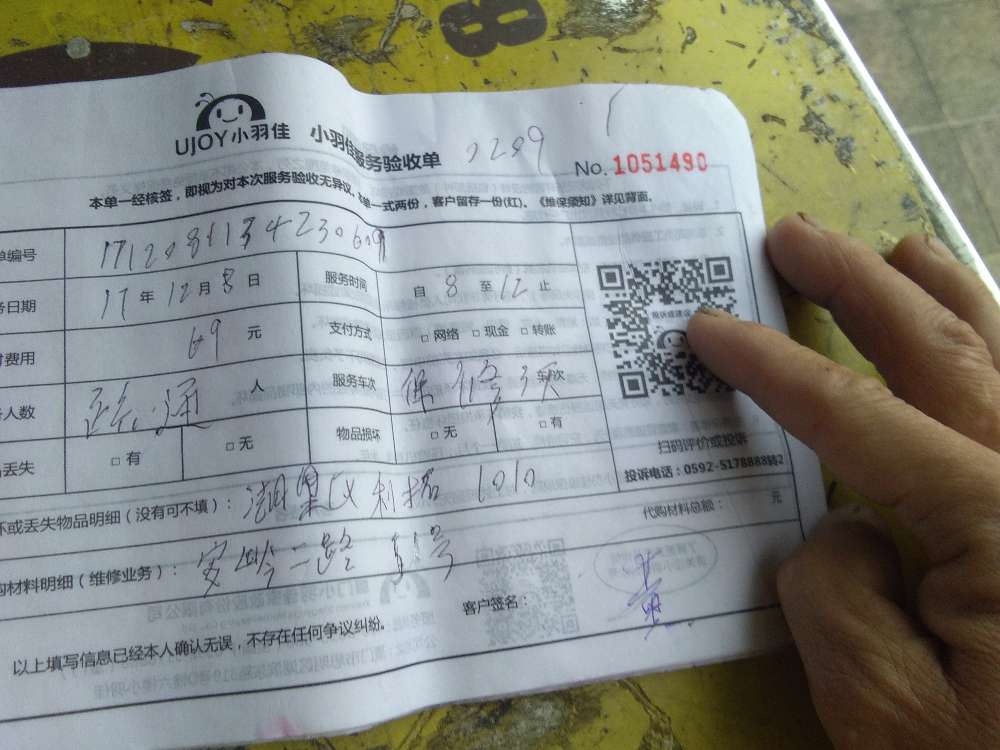 UJOY小羽佳 小羽佳服务验收单 0209
No. 1051490
本单一经核签，即视为对本次服务验收无异议。本单一式两份，客户留存一份(红)。《维保须知》详见背面。
单编号 1712081134230609
务日期 17 年 12 月 8 日 服务时间 自 8 至 12 止
付费用 69 元 支付方式 □ 网络 □ 现金 □ 转账
人数 通 人 服务车次 保 修 车/次
丢失 □ 有 □ 无 物品损坏 □ 无 □ 有
投诉或建议
扫码评价或投诉
投诉电话：0592-5178888转2
坏或丢失物品明细（没有可不填）： 湖里区 1010
代购材料总额： 元
购材料明细（维修业务）： 安岭二路 号
客户签名：
以上填写信息已经本人确认无误，不存在任何争议纠纷。